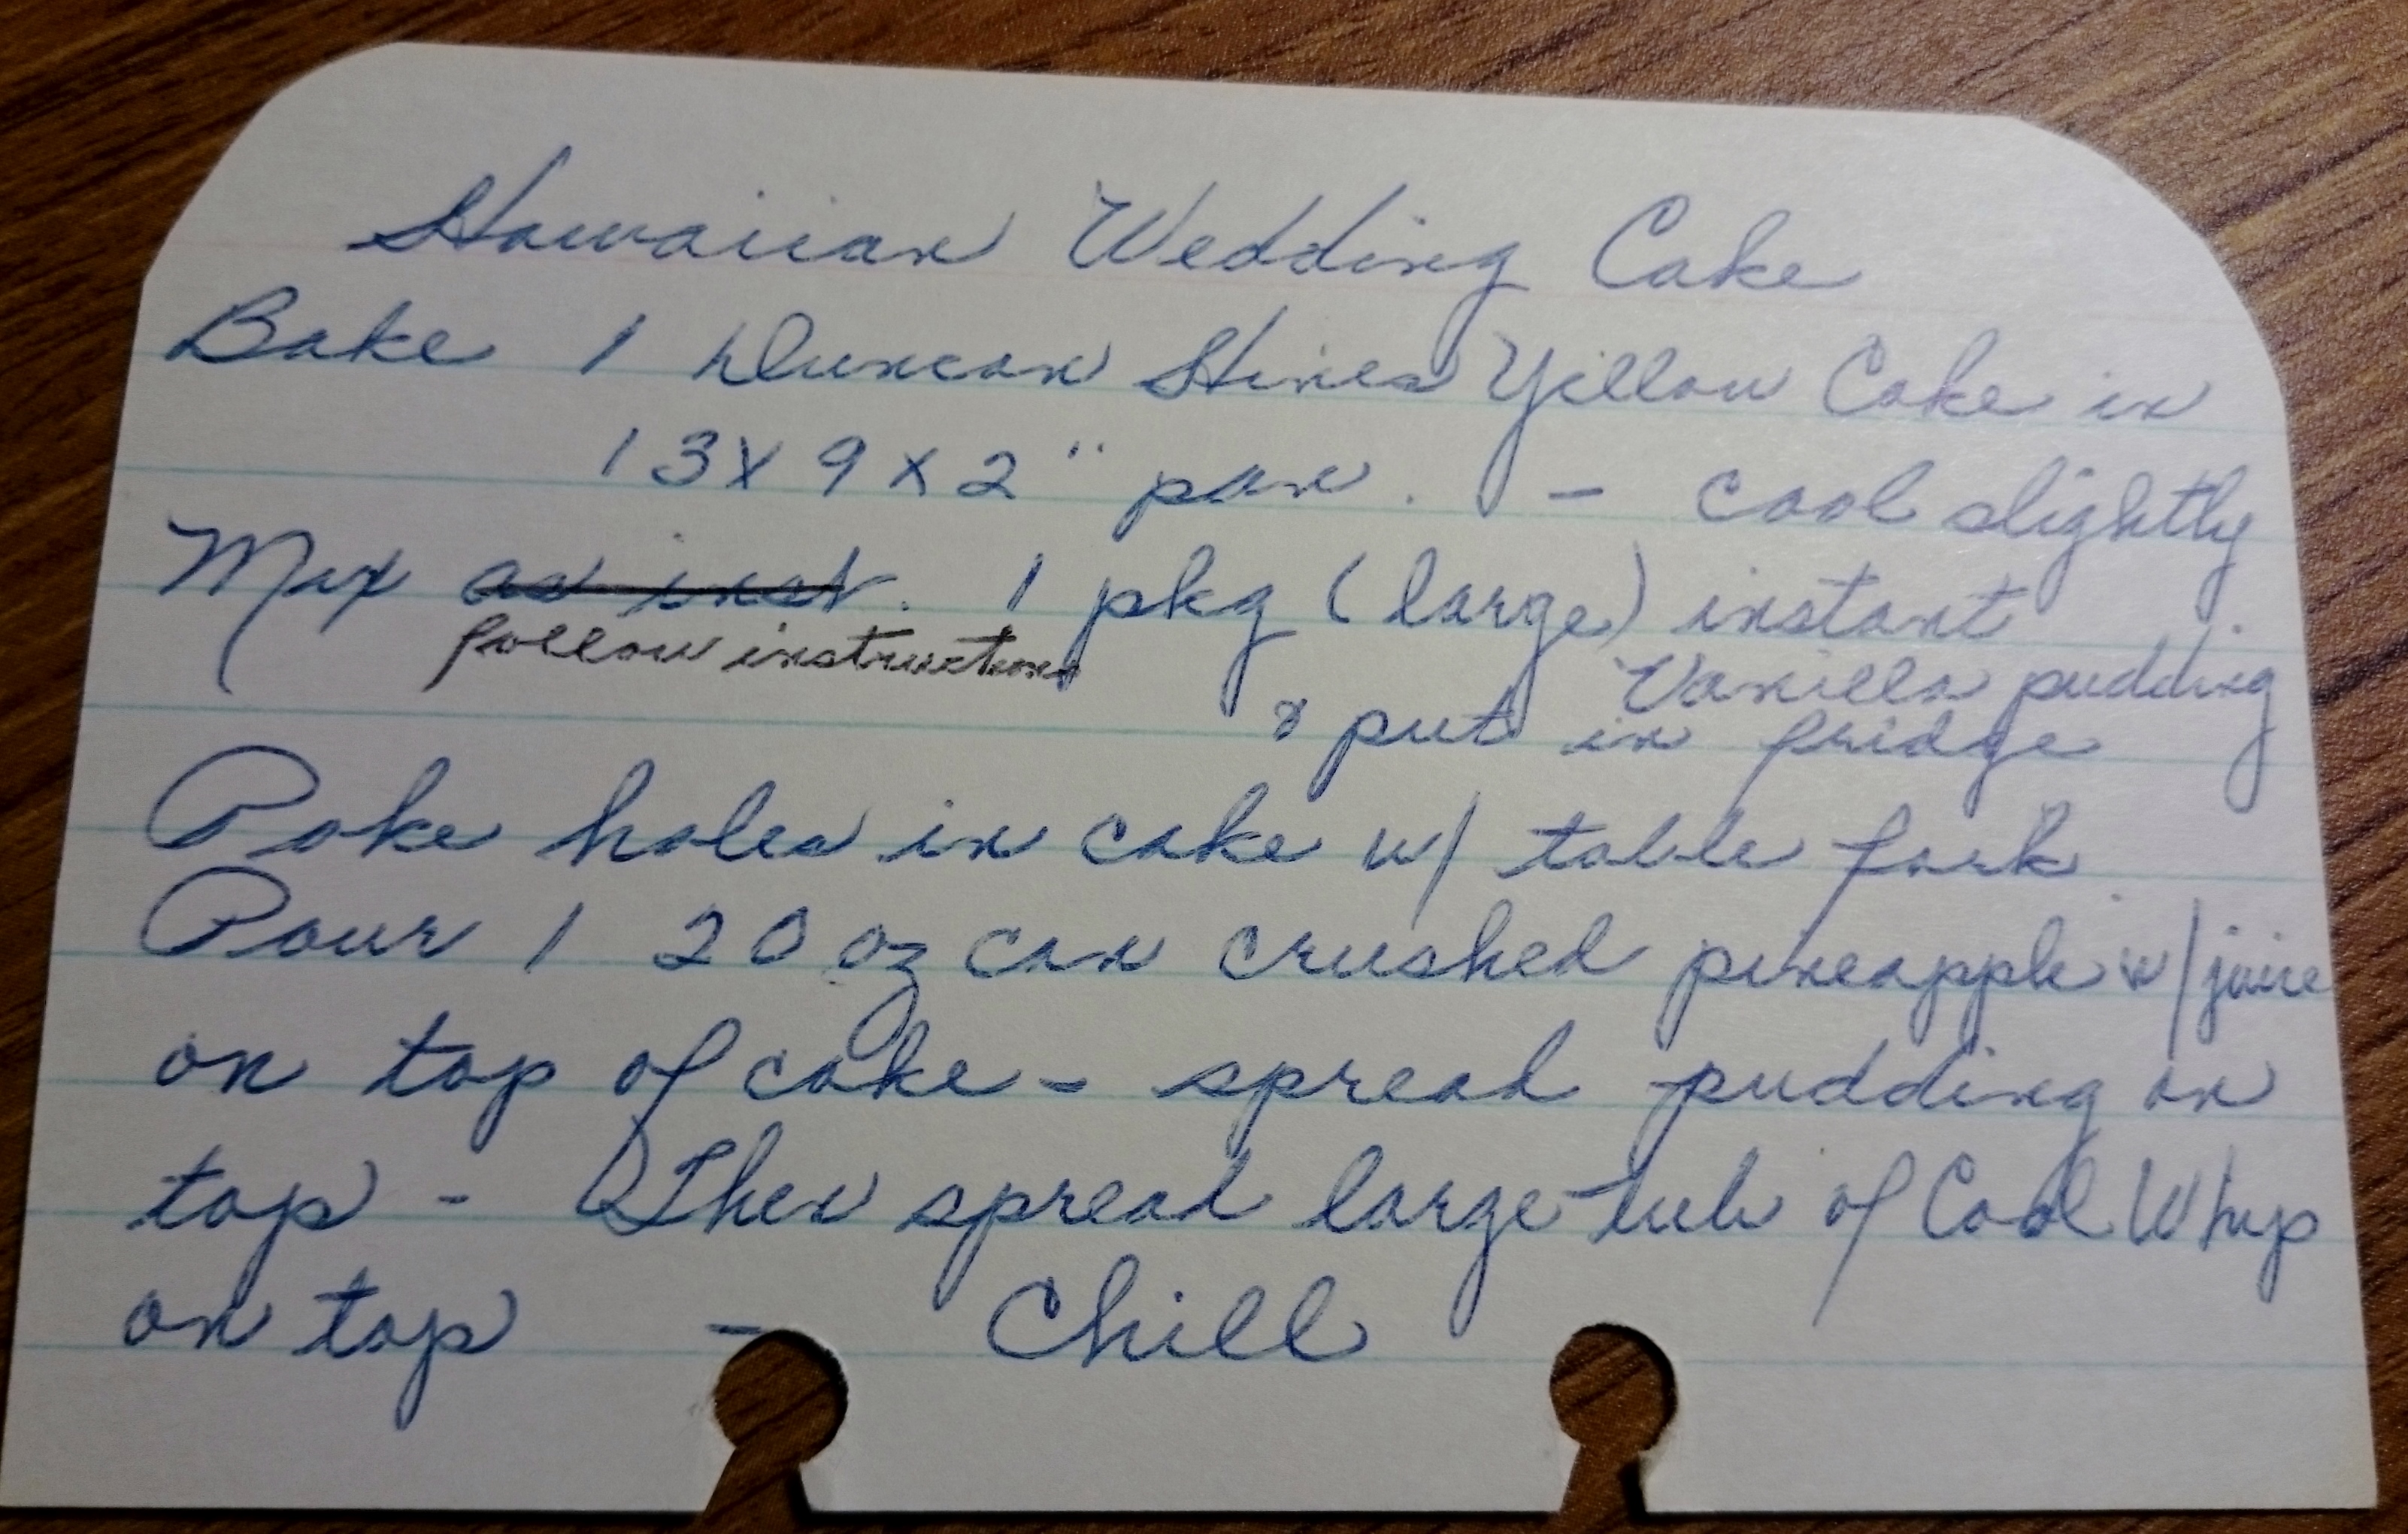 Hawaiian Wedding Cake
Bake 1 Duncan Hines Yellow Cake in
13x9x2" pan. - cool slightly
Mix as inst. 1 pkg (large) instant
follow instructions
Vanilla pudding
& put in fridge
Poke holes in cake w/ table fork.
Pour 1 20 oz can crushed pineapple w/juice
on top of cake - spread pudding on
top - Then spread large tub of Cool Whip
on top - Chill